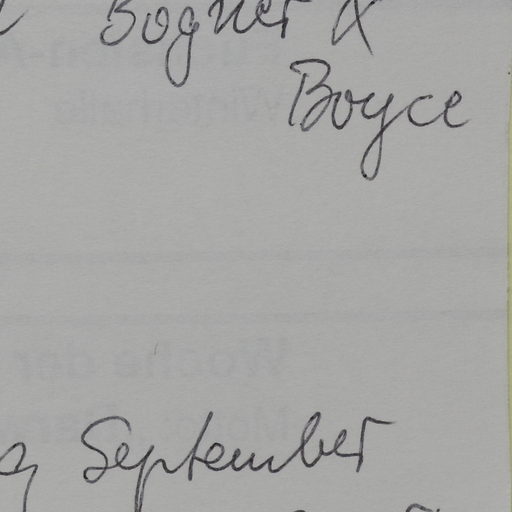 Bogner &
Boyce
September